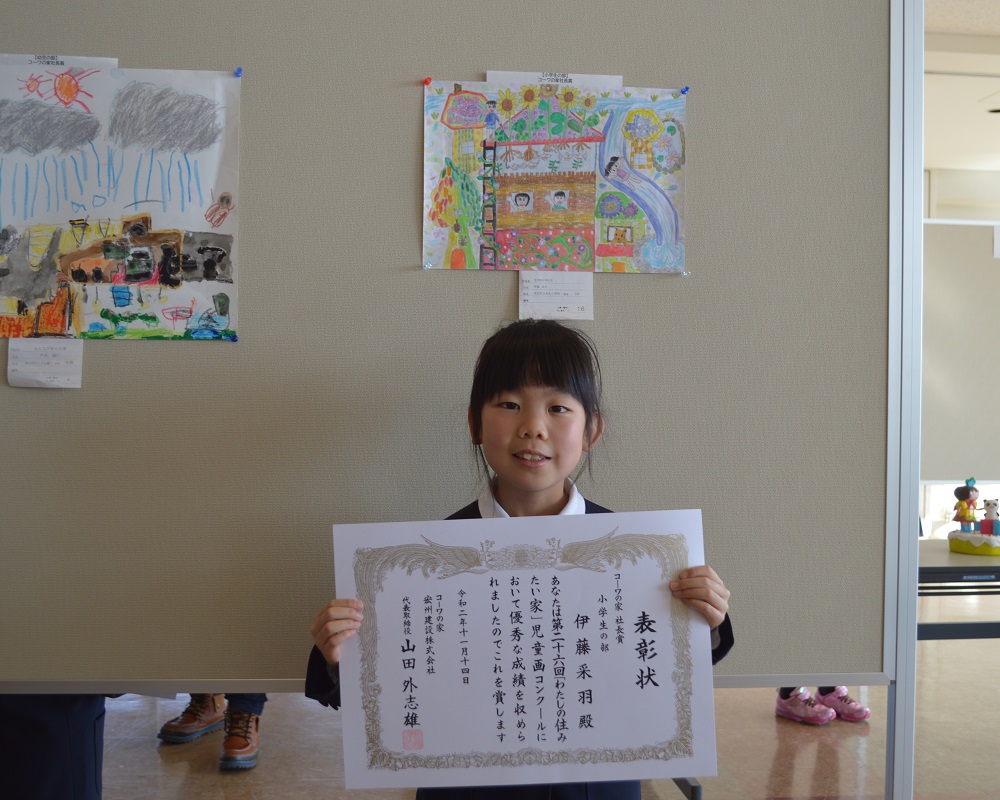 【幼児の部】
コーワの家社長賞
【小学生の部】
コーワの家社長賞
表彰状
コーワの家 社長賞
小学生の部
伊藤采羽殿
あなたは第二十六回「わたしの住み
たい家」児童画コンクールに
おいて優秀な成績を収めら
れましたのでこれを賞します
令和二年十一月十四日
コーワの家
宏州建設株式会社
代表取締役 山田外志雄